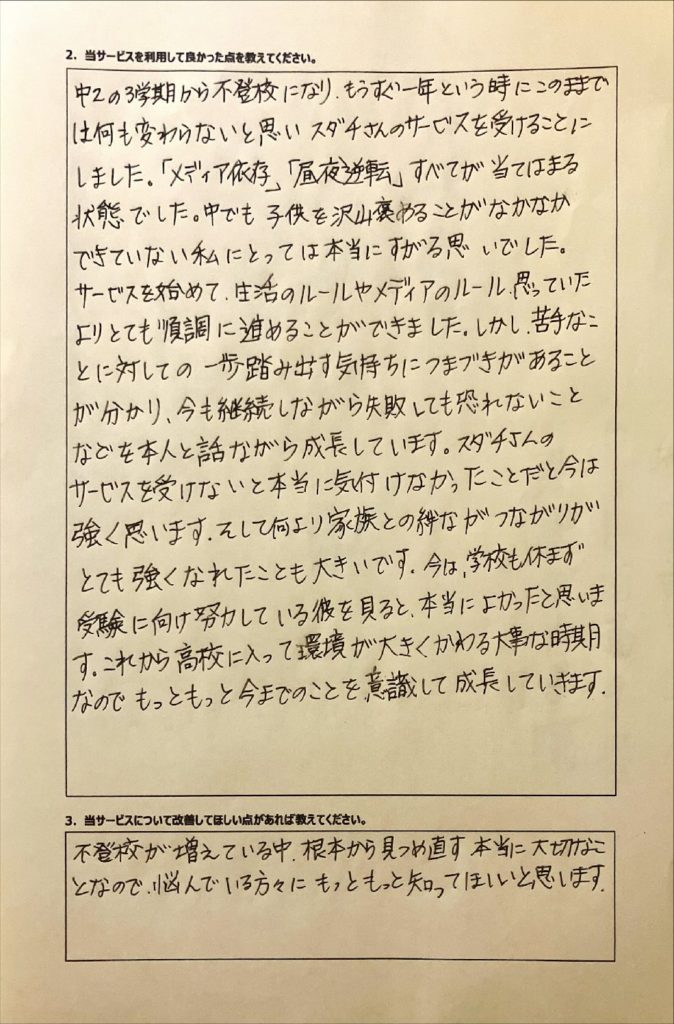 2. 当サービスを利用して良かった点を教えてください。
中2の3学期から不登校になり、もうすぐ一年という時にこのままで
は何も変わらないと思いスダチさんのサービスを受けることに
しました。「メディア依存」「昼夜逆転」すべてが当てはまる
状態でした。中でも子供を沢山褒めることがなかなか
できていない私にとっては本当にすがる思いでした。
サービスを始めて、生活のルールやメディアのルール、思っていた
よりとても順調に進めることができました。しかし、苦手なこ
とに対しての一歩踏み出す気持ちにつまづきがあること
が分かり、今も継続しながら失敗しても恐れないこと
などを本人と話ながら成長しています。スダチさんの
サービスを受けないと本当に気付けなかったことだと今は
強く思います。そして何より家族との絆ながつながりが
とても強くなれたことも大きいです。今は、学校も休まず
受験に向け努力している彼を見ると、本当によかったと思いま
す。これから高校に入って環境が大きくかわる大事な時期
なのでもっともっと今までのことを意識して成長していきます。
3. 当サービスについて改善してほしい点があれば教えてください。
不登校が増えている中、根本から見つめ直す本当に大切なこ
となので、悩んでいる方々にもっともっと知ってほしいと思います。